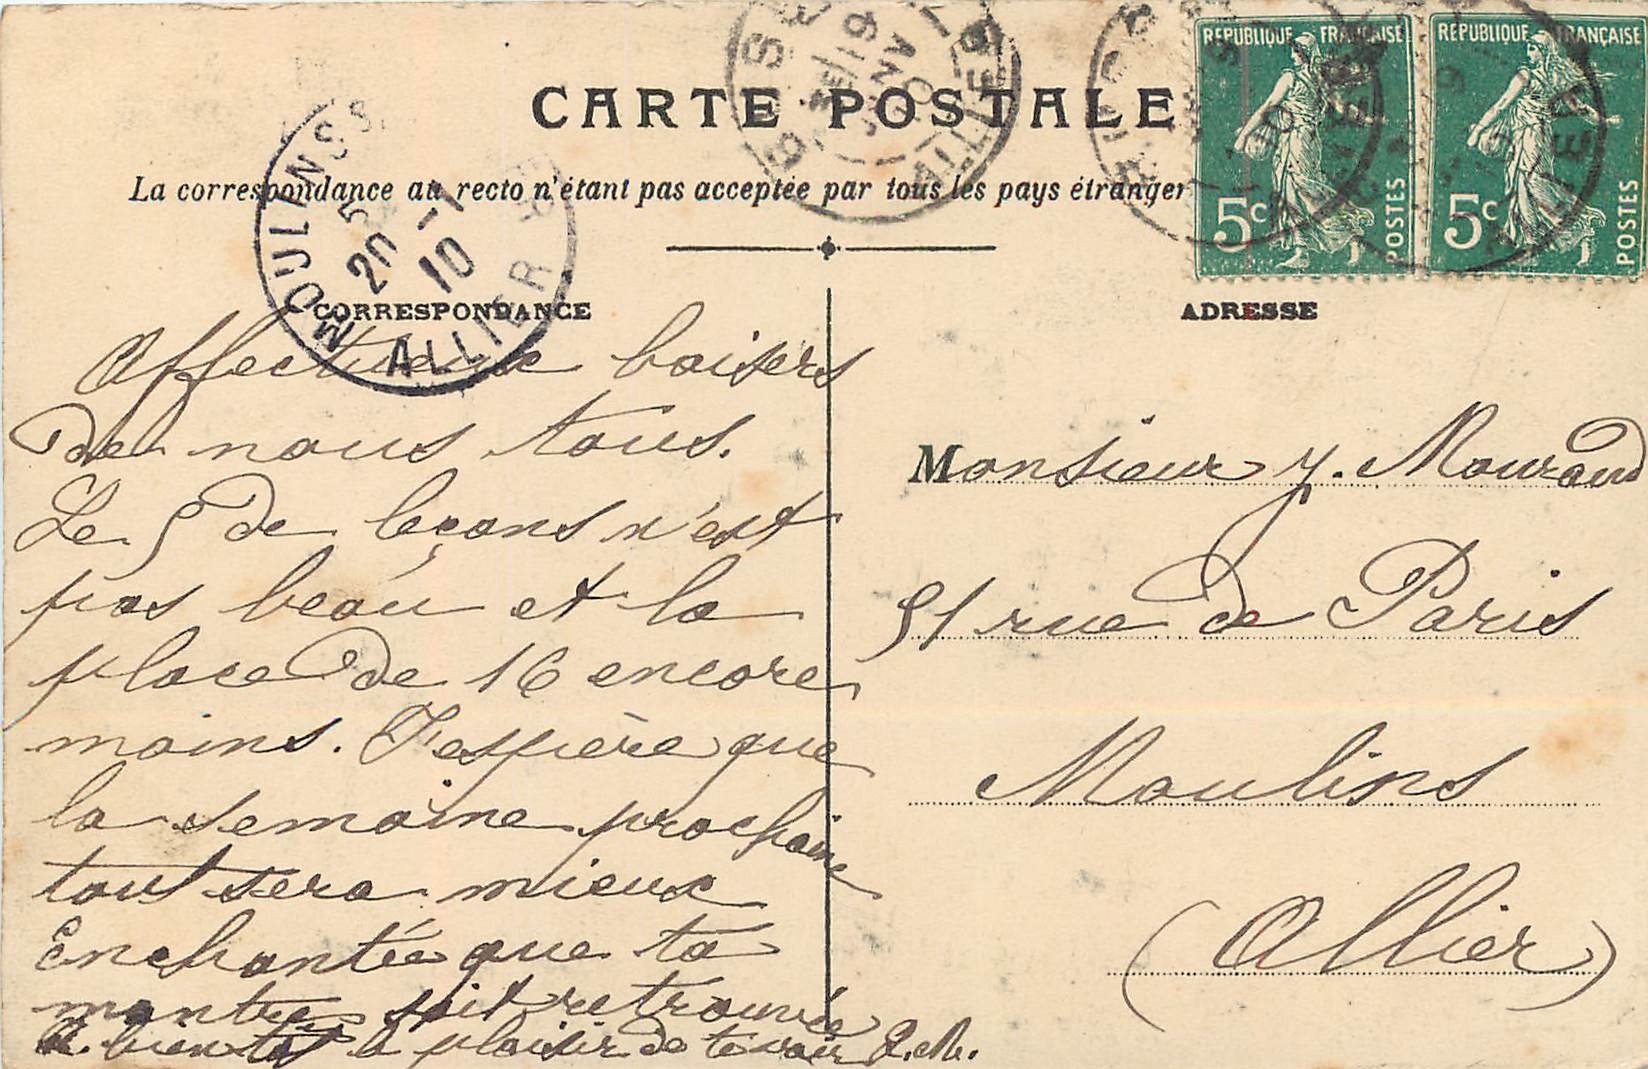 CARTE POSTALE
La correspondance au recto n'étant pas acceptée par tous les pays étranger
RÉPUBLIQUE FRANÇAISE
5c
POSTES
RÉPUBLIQUE FRANÇAISE
5c
POSTES
MOULINS S
20 -1
10
ALLIER
ALLIER
CORRESPONDANCE
Affectueux baisers
de nous tous.
Le 5 de leçons n'est
pas beau et la
place de 16 encore
moins. J'espère que
la semaine prochaine
tout sera mieux
Enchantée que ta
montre soit retrouvée
A bientôt le plaisir de te voir
ADRESSE
Monsieur J. Mouraud
51 rue de Paris
Moulins
(Allier)